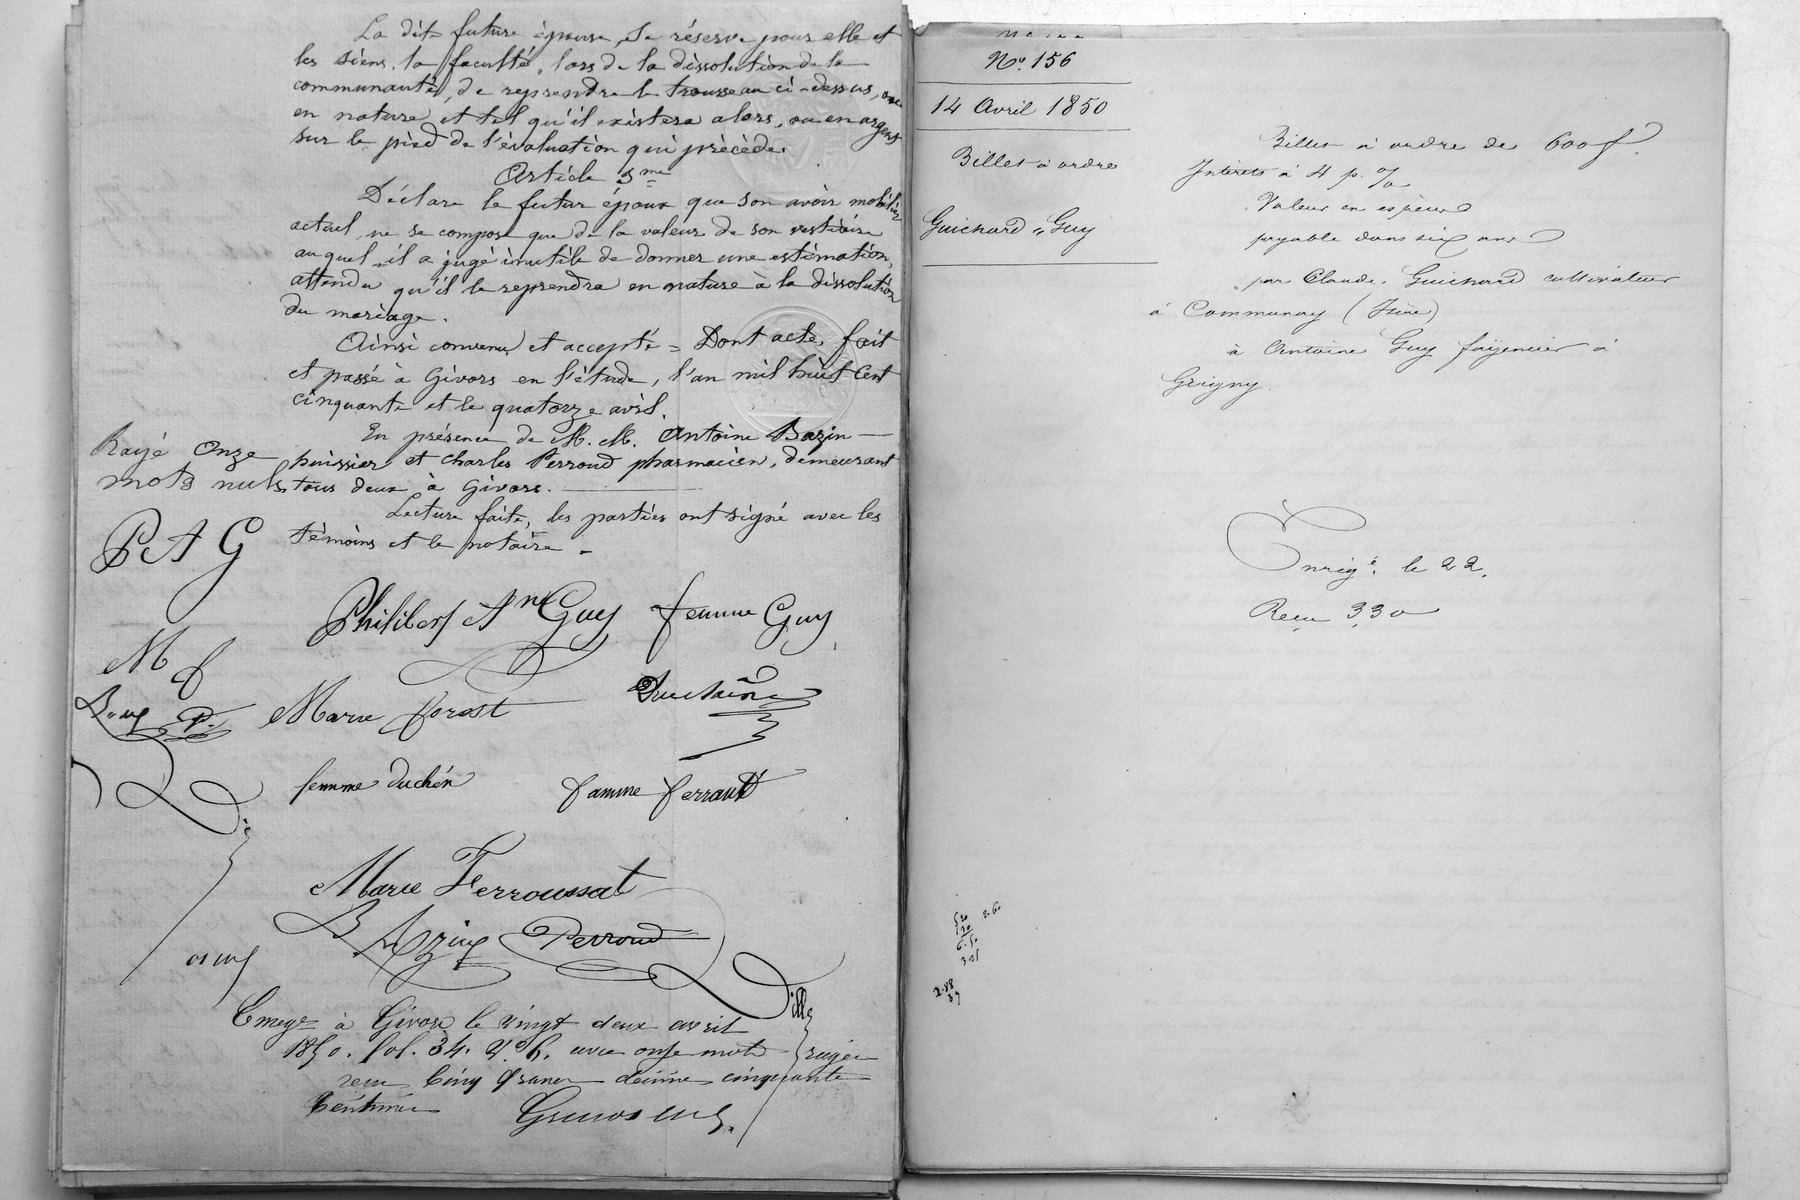 La dite future épouse, se réserve pour elle et
les siens, la faculté, lors de la dissolution de la
communauté, de reprendre le trousseau ci-dessus, ou
en nature et tel qu'il existera alors, ou en argent
sur le pied de l'évaluation qui précède.
Article 5me
Déclare le futur époux que son avoir mobilier
actuel, ne se compose que de la valeur de son vestiaire
auquel il a jugé inutile de donner une estimation,
attendu qu'il le reprendra en nature à la dissolution
du mariage.
Ainsi convenu et accepté = Dont acte, fait
et passé à Givors en l'étude, l'an mil huit cent
cinquante et le quatorze avril.
En présence de M. M. Antoine Bazin
huissier et Charles Perroud pharmacien, demeurant
tous deux à Givors.
Lecture faite, les parties ont signé avec les
témoins et le notaire.
Rayé onze
mots nuls
P A G
M f
P.
Philibert Ane Guy femme Guy
Marie forest Duchaine
femme duchén famme ferraut
Marie Ferroussat
Bazin Perroud
Dille
Enregé à Givors le vingt deux avril
1850. fol. 34. Vo. 6. avec onze mots rayés
reçu cinq francs décime cinquante
centimes
No. 156
14 Avril 1850
Billet à ordre
Guichard " Guy
Billet à ordre de 600 f.
Intérêts à 4 p. %
Valeur en espèces
payable dans six ans
par Claude Guichard cultivateur
à Communay (Isère)
à Antoine Guy fayencier à
Grigny.
Enregé. le 22.
Reçu 3,30